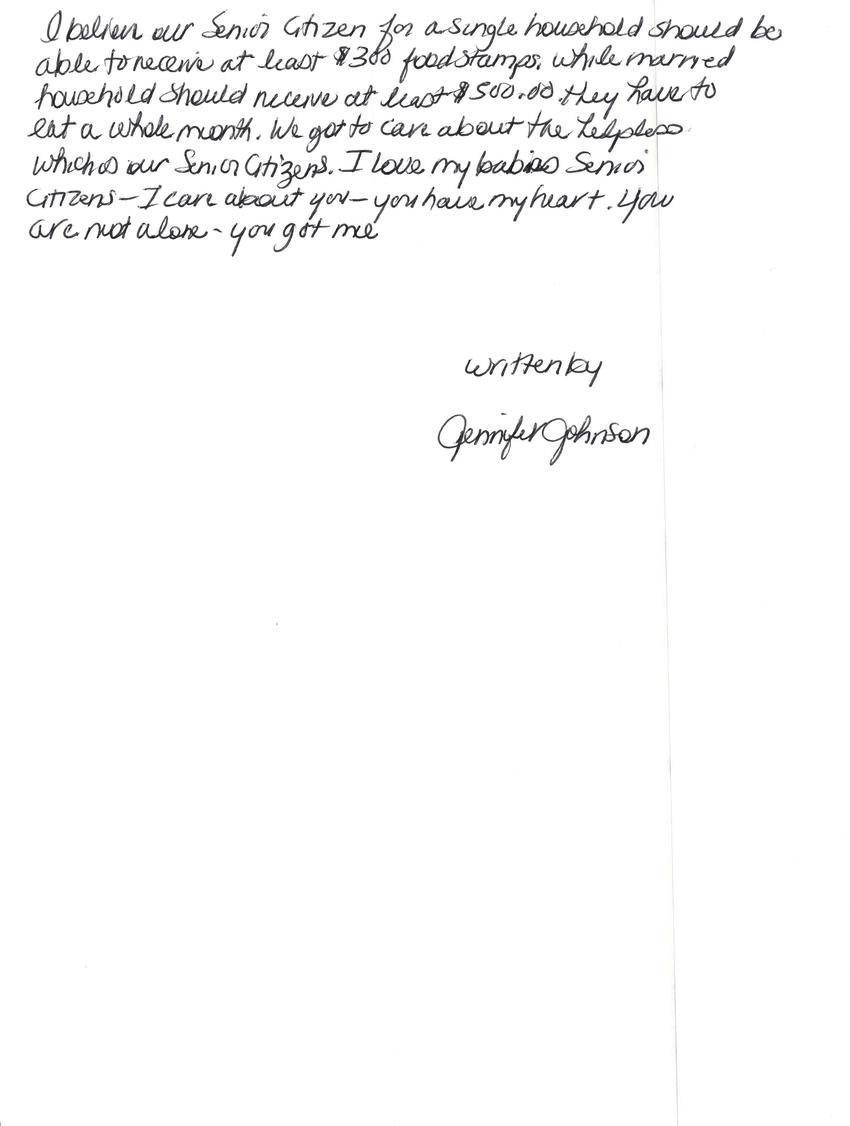 I believe our Senior Citizen for a single household should be
able to receive at least $300 food stamps. while married
household should receive at least $500.00 they have to
eat a whole month. We got to care about the helpless
which is our Senior Citizens. I love my babies Senior
Citizens - I care about you - you have my heart. You
are not alone - you got me
written by
Jennifer Johnson